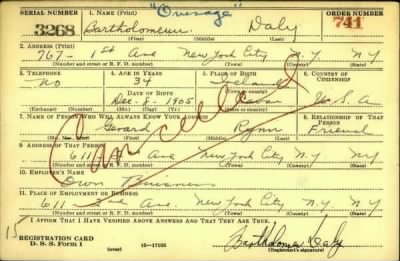 "Overage"
SERIAL NUMBER 1. NAME (Print) ORDER NUMBER
3268 Bartholomew Daly 741
(First) (Middle) (Last)
2. ADDRESS (Print)
767 - 1st Ave New York City N.Y. NY
(Number and street or R. F. D. number) (Town) (County) (State)
3. TELEPHONE 4. AGE IN YEARS 5. PLACE OF BIRTH 6. COUNTRY OF CITIZENSHIP
No 34 Ireland
DATE OF BIRTH Cavan
Dec - 8 - 1905 U.S.A
(Exchange) (Number) (Mo.) (Day) (Yr.) (State or country)
7. NAME OF PERSON WHO WILL ALWAYS KNOW YOUR ADDRESS 8. RELATIONSHIP OF THAT PERSON
Gerard Rynn Friend
(Mr., Mrs., Miss) (First) (Middle) (Last)
9. ADDRESS OF THAT PERSON
611 Ave New York City N.Y NY
(Number and street or R. F. D. number) (Town) (County) (State)
10. EMPLOYER'S NAME
Own Business
11. PLACE OF EMPLOYMENT OR BUSINESS
611 2nd Ave. New York City N.Y NY
(Number and street or R. F. D. number) (Town) (County) (State)
I AFFIRM THAT I HAVE VERIFIED ABOVE ANSWERS AND THAT THEY ARE TRUE.
15
REGISTRATION CARD
D. S. S. Form 1 (over) 16-17105 Bartholomew Daly
(Registrant's signature)
Cancelled